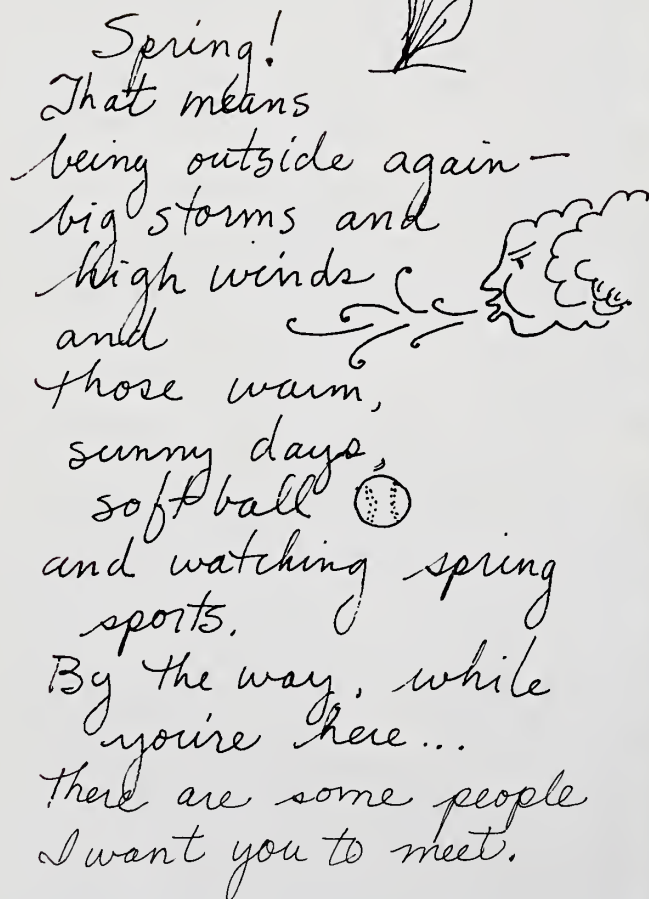 Spring!
That means
being outside again—
big storms and
high winds
and
those warm,
sunny days,
softball
and watching spring
sports.
By the way, while
you're here...
There are some people
I want you to meet.